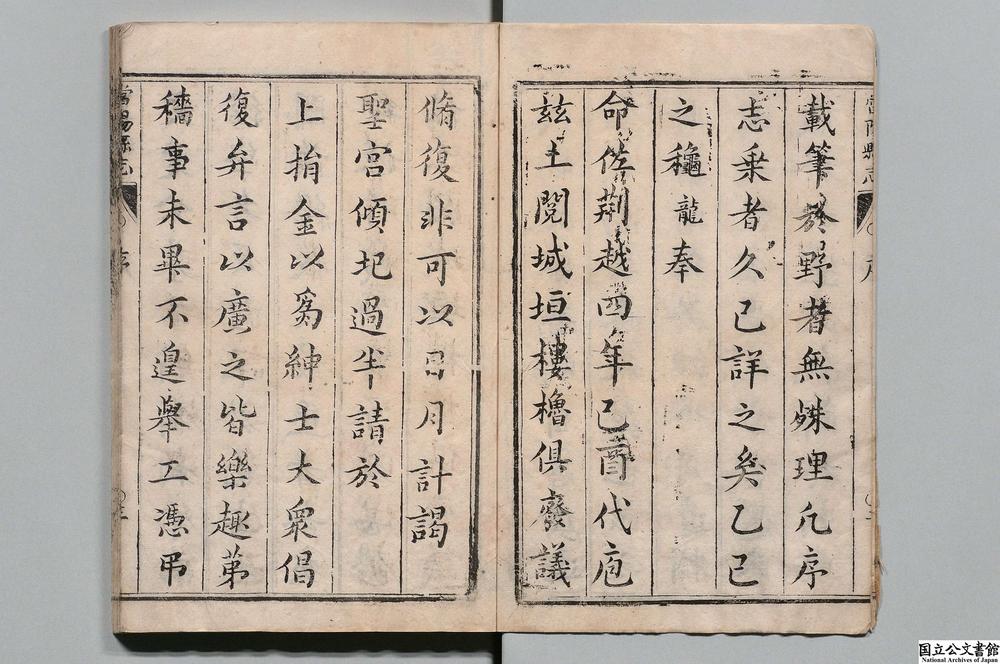 載筆於野者無殊理凡序
志乗者久已詳之矣乙巳
之穐龍奉
命佐荆越四年己酉代庖
兹土閲城垣樓櫓俱廢議
脩復非可以日月計謁
聖宮傾圮過半請於
上捐金以為紳士大衆倡
復弁言以廣之皆樂趣苐
穡事未畢不遑舉工憑弔
當陽縣志
序
國立公文書館
National Archives of Japan